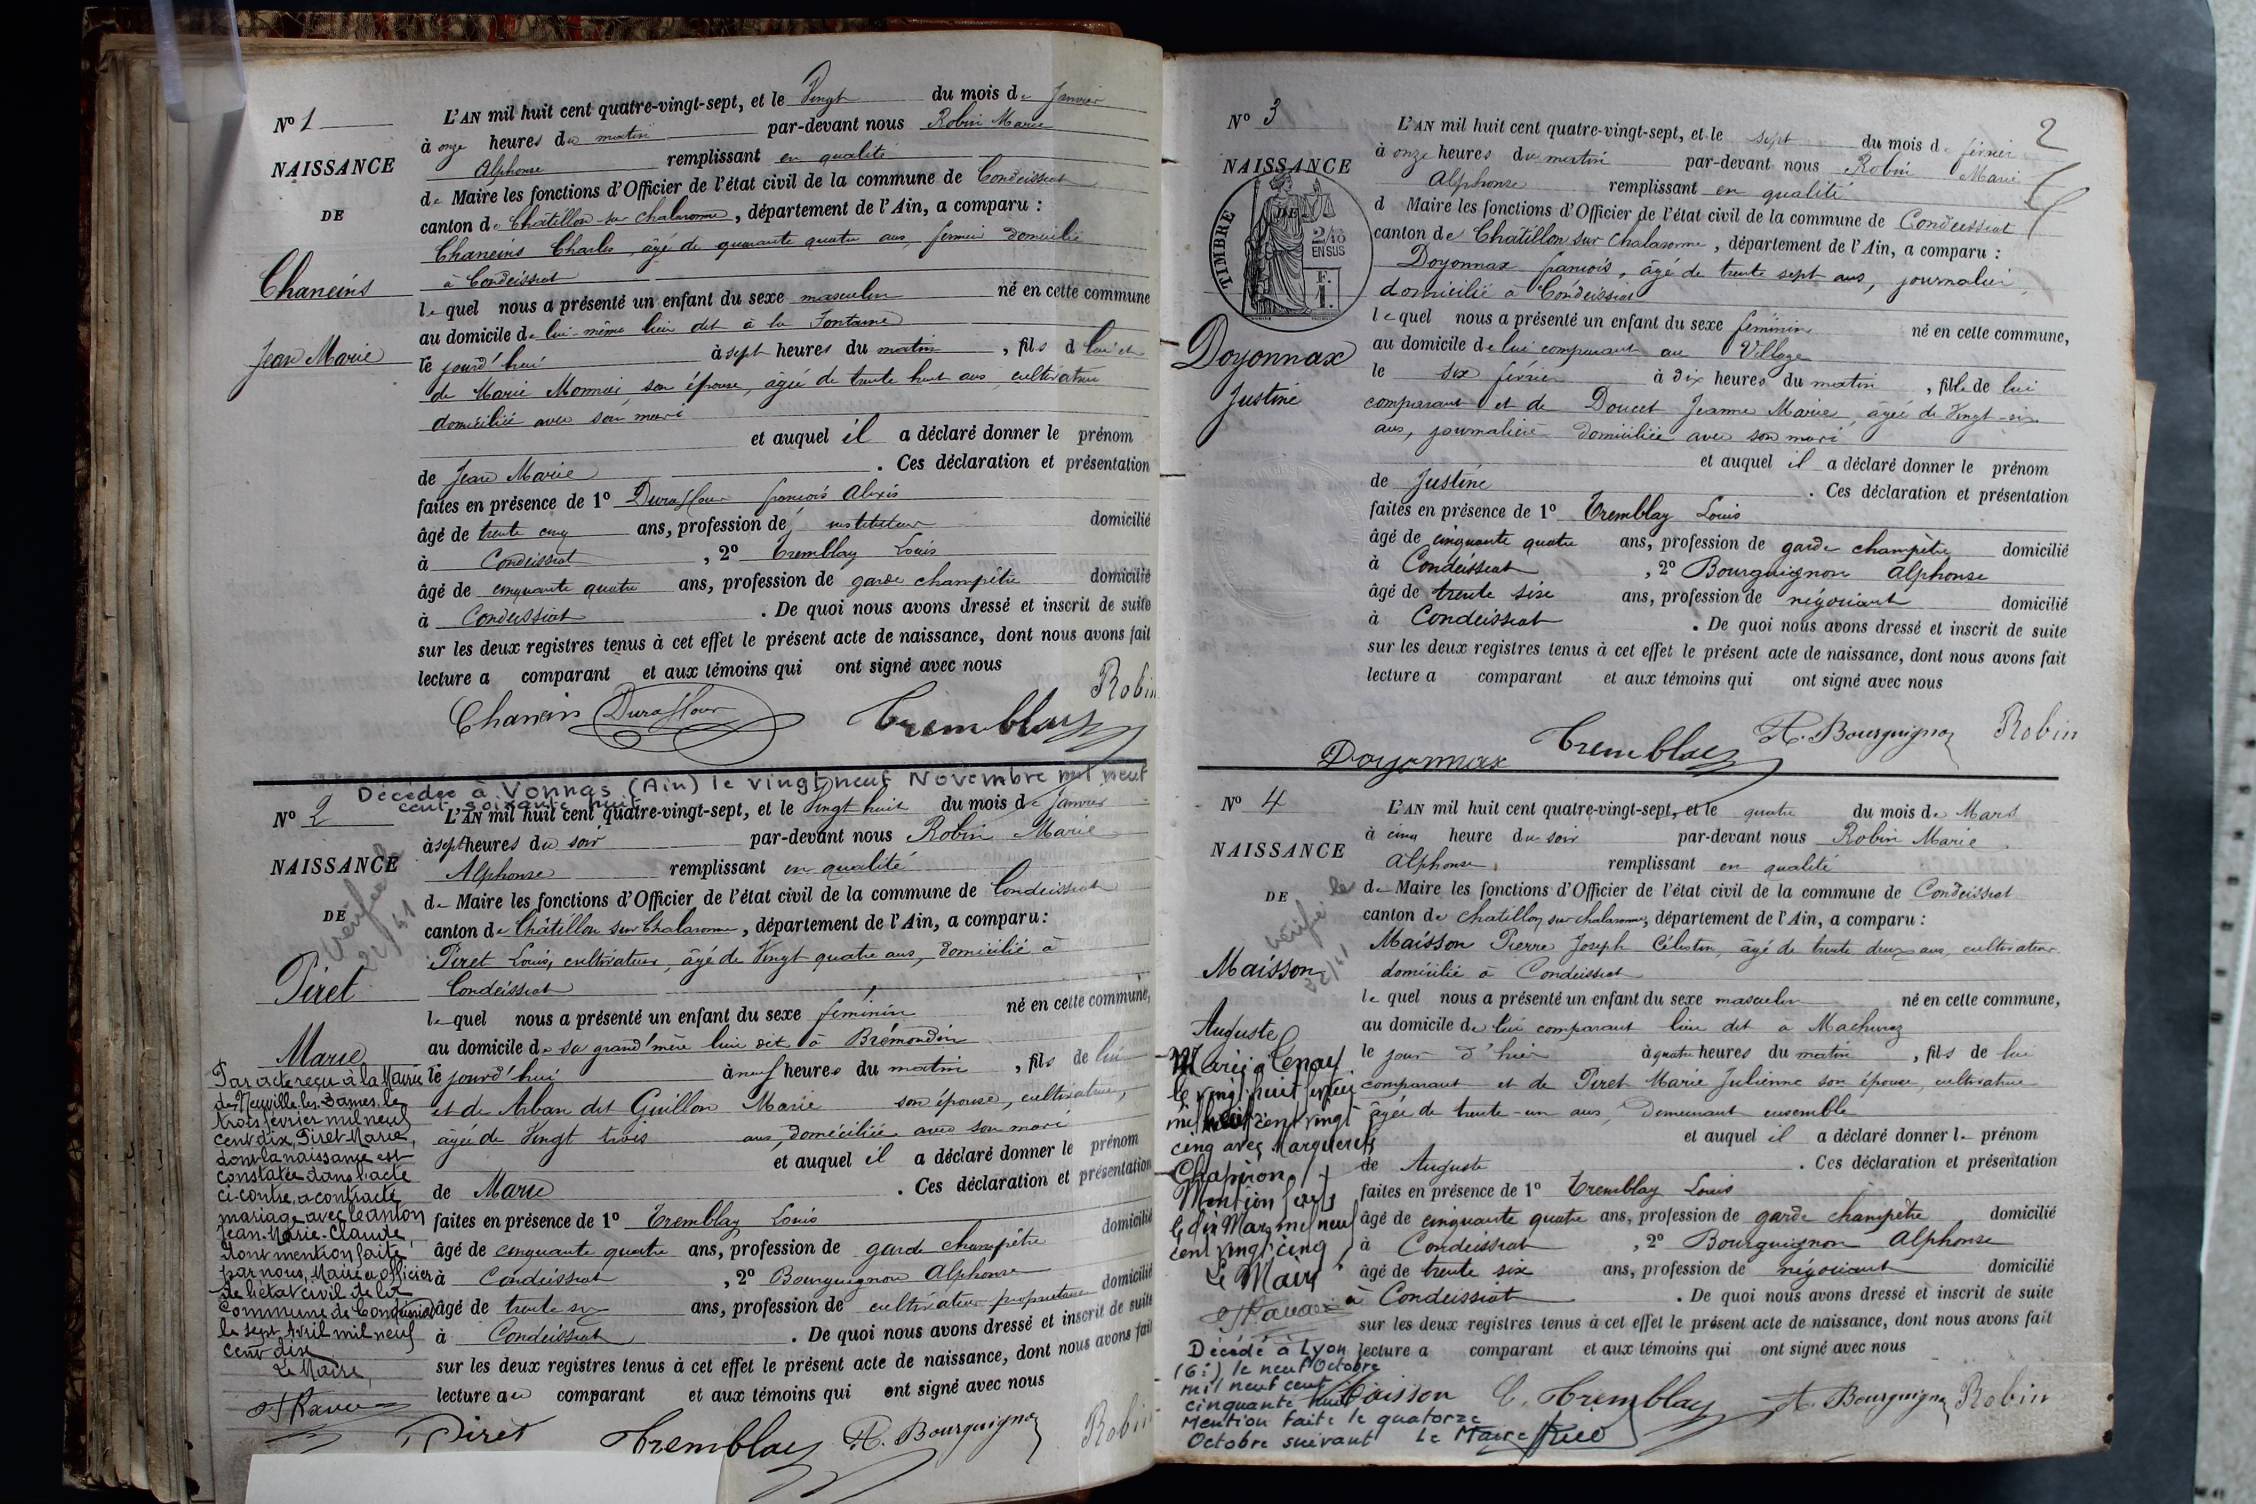 N° 1
NAISSANCE
DE
Chaneins
Jean Marie
L'AN mil huit cent quatre-vingt-sept, et le Vingt du mois de Janvier
à onze heures du matin par-devant nous Robin Marie
Alphonse remplissant en qualité
de Maire les fonctions d'Officier de l'état civil de la commune de Condeissiat
canton de Châtillon-sur-Chalaronne, département de l'Ain, a comparu :
Chaneins Charles, âgé de quarante quatre ans, fermier domicilié
à Condeissiat
lequel nous a présenté un enfant du sexe masculin né en cette commune
au domicile de lui-même lieu dit à la Fontaine
le jourd'hui à sept heures du matin, fils d lui et
de Marie Monnai, son épouse, âgée de trente huit ans, cultivatrice
domiciliée avec son mari
et auquel il a déclaré donner le prénom
de Jean Marie. Ces déclaration et présentation
faites en présence de 1° Duraffour françois Alexis
âgé de trente cinq ans, profession de instituteur domicilié
à Condeissiat, 2° Tremblay Louis
âgé de cinquante quatre ans, profession de garde champêtre domicilié
à Condeissiat. De quoi nous avons dressé et inscrit de suite
sur les deux registres tenus à cet effet le présent acte de naissance, dont nous avons fait
lecture a comparant et aux témoins qui ont signé avec nous
Chanein Duraffour Tremblay Robin
Décédée à Vonnas (Ain) le vingt neuf Novembre mil neuf
cent soixante huit
N° 2
NAISSANCE
DE
Vérifié le
Piret
Marie
L'AN mil huit cent quatre-vingt-sept, et le Vingt huit du mois de Janvier
à sept heures du soir par-devant nous Robin Marie
Alphonse remplissant en qualité
de Maire les fonctions d'Officier de l'état civil de la commune de Condeissiat
canton de Châtillon sur Chalaronne, département de l'Ain, a comparu :
Piret Louis, cultivateur, âgé de Vingt quatre ans, domicilié à
Condeissiat
lequel nous a présenté un enfant du sexe féminin né en cette commune,
au domicile de sa grand'mère lieu dit à Brémondin
le jourd'hui à neuf heures du matin, fils de lui
et de Arban dit Guillon Marie son épouse, cultivatrice,
âgée de Vingt trois ans, domiciliée avec son mari
et auquel il a déclaré donner le prénom
de Marie. Ces déclaration et présentation
faites en présence de 1° Tremblay Louis
âgé de cinquante quatre ans, profession de garde champêtre domicilié
à Condeissiat, 2° Bourguignon Alphonse
âgé de trente six ans, profession de cultivateur propriétaire domicilié
à Condeissiat. De quoi nous avons dressé et inscrit de suite
sur les deux registres tenus à cet effet le présent acte de naissance, dont nous avons fait
lecture au comparant et aux témoins qui ont signé avec nous
Piret Tremblay A. Bourguignon Robin
Par acte reçu à la Mairie
de Neuville-les-Dames, le
trois février mil neuf
cent dix, Piret Marie,
dont la naissance est
constatée dans l'acte
ci-contre, a contracté
mariage avec Léanton
Jean-Marie-Claude,
dont mention faite
par nous, Maire et officier
de l'état civil de la
Commune de Condeissiat
le sept Avril mil neuf
cent dix
Le Maire,
N° 3
NAISSANCE
DE
TIMBRE
2/10
EN SUS
F.
1.
Doyonnax
Justine
2
L'AN mil huit cent quatre-vingt-sept, et le sept du mois de février
à onze heures du matin par-devant nous Robin Marie
Alphonse remplissant en qualité
d Maire les fonctions d'Officier de l'état civil de la commune de Condeissiat
canton de Chatillon sur Chalaronne, département de l'Ain, a comparu :
Doyonnax françois, âgé de trente sept ans, journalier,
domicilié à Condeissiat
lequel nous a présenté un enfant du sexe féminin né en cette commune,
au domicile de lui comparant au Village
le six février à dix heures du matin, fille de lui
comparant et de Doucet Jeanne Marie, âgée de Vingt-six
ans, journalière domiciliée avec son mari
et auquel il a déclaré donner le prénom
de Justine. Ces déclaration et présentation
faites en présence de 1° Tremblay Louis
âgé de cinquante quatre ans, profession de garde champêtre domicilié
à Condeissiat, 2° Bourguignon Alphonse
âgé de trente six ans, profession de négociant domicilié
à Condeissiat. De quoi nous avons dressé et inscrit de suite
sur les deux registres tenus à cet effet le présent acte de naissance, dont nous avons fait
lecture a comparant et aux témoins qui ont signé avec nous
Doyonnax Tremblay A. Bourguignon Robin
N° 4
NAISSANCE
DE
vérifié le
Maisson
Auguste
L'AN mil huit cent quatre-vingt-sept, et le quatre du mois de Mars
à cinq heure du soir par-devant nous Robin Marie
Alphonse remplissant en qualité
de Maire les fonctions d'Officier de l'état civil de la commune de Condeissiat
canton de Chatillon sur Chalaronne, département de l'Ain, a comparu :
Maisson Pierre Joseph Célestin, âgé de trente deux ans, cultivateur
domicilié à Condeissiat
lequel nous a présenté un enfant du sexe masculin né en cette commune,
au domicile de lui comparant lieu dit a Machurez
le jour d'hier à quatre heures du matin, fils de lui
comparant et de Piret Marie Julienne son épouse, cultivatrice
âgée de trente-un ans, demeurant ensemble
et auquel il a déclaré donner l- prénom
de Auguste. Ces déclaration et présentation
faites en présence de 1° Tremblay Louis
âgé de cinquante quatre ans, profession de garde champêtre domicilié
à Condeissiat, 2° Bourguignon Alphonse
âgé de trente six ans, profession de négociant domicilié
à Condeissiat. De quoi nous avons dressé et inscrit de suite
sur les deux registres tenus à cet effet le présent acte de naissance, dont nous avons fait
lecture a comparant et aux témoins qui ont signé avec nous
Maisson L. Tremblay A. Bourguignon Robin
Marié à Cenay
le vingt huit février
mil neuf cent vingt
cinq avec Marguerite
Chapiron
Mention faite
le dix Mars mil neuf
cent vingt cinq
Le Maire
Décédé à Lyon
(6e) le neuf Octobre
mil neuf cent
cinquante huit
Mention faite le quatorze
Octobre suivant Le Maire